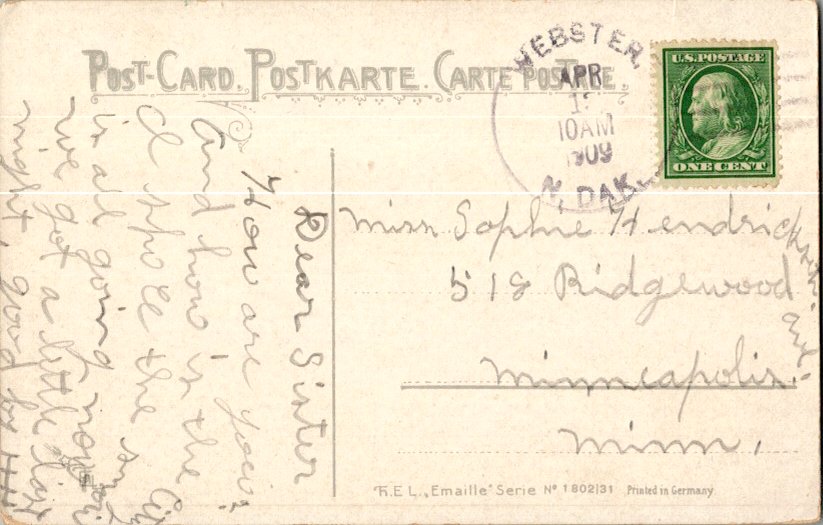 POST-CARD. POSTKARTE. CARTE POSTALE.
WEBSTER,
APR
10AM
1909
N. DAK.
U.S. POSTAGE
ONE CENT
Dear Sister
How are you
and how is the City
I spose the
is all going now
we got a little
night, good by
Miss Sophie Hendrickson
518 Ridgewood ave.
Minneapolis.
Minn.
H.E.L. „Emaille" Serie No 1802|31 Printed in Germany